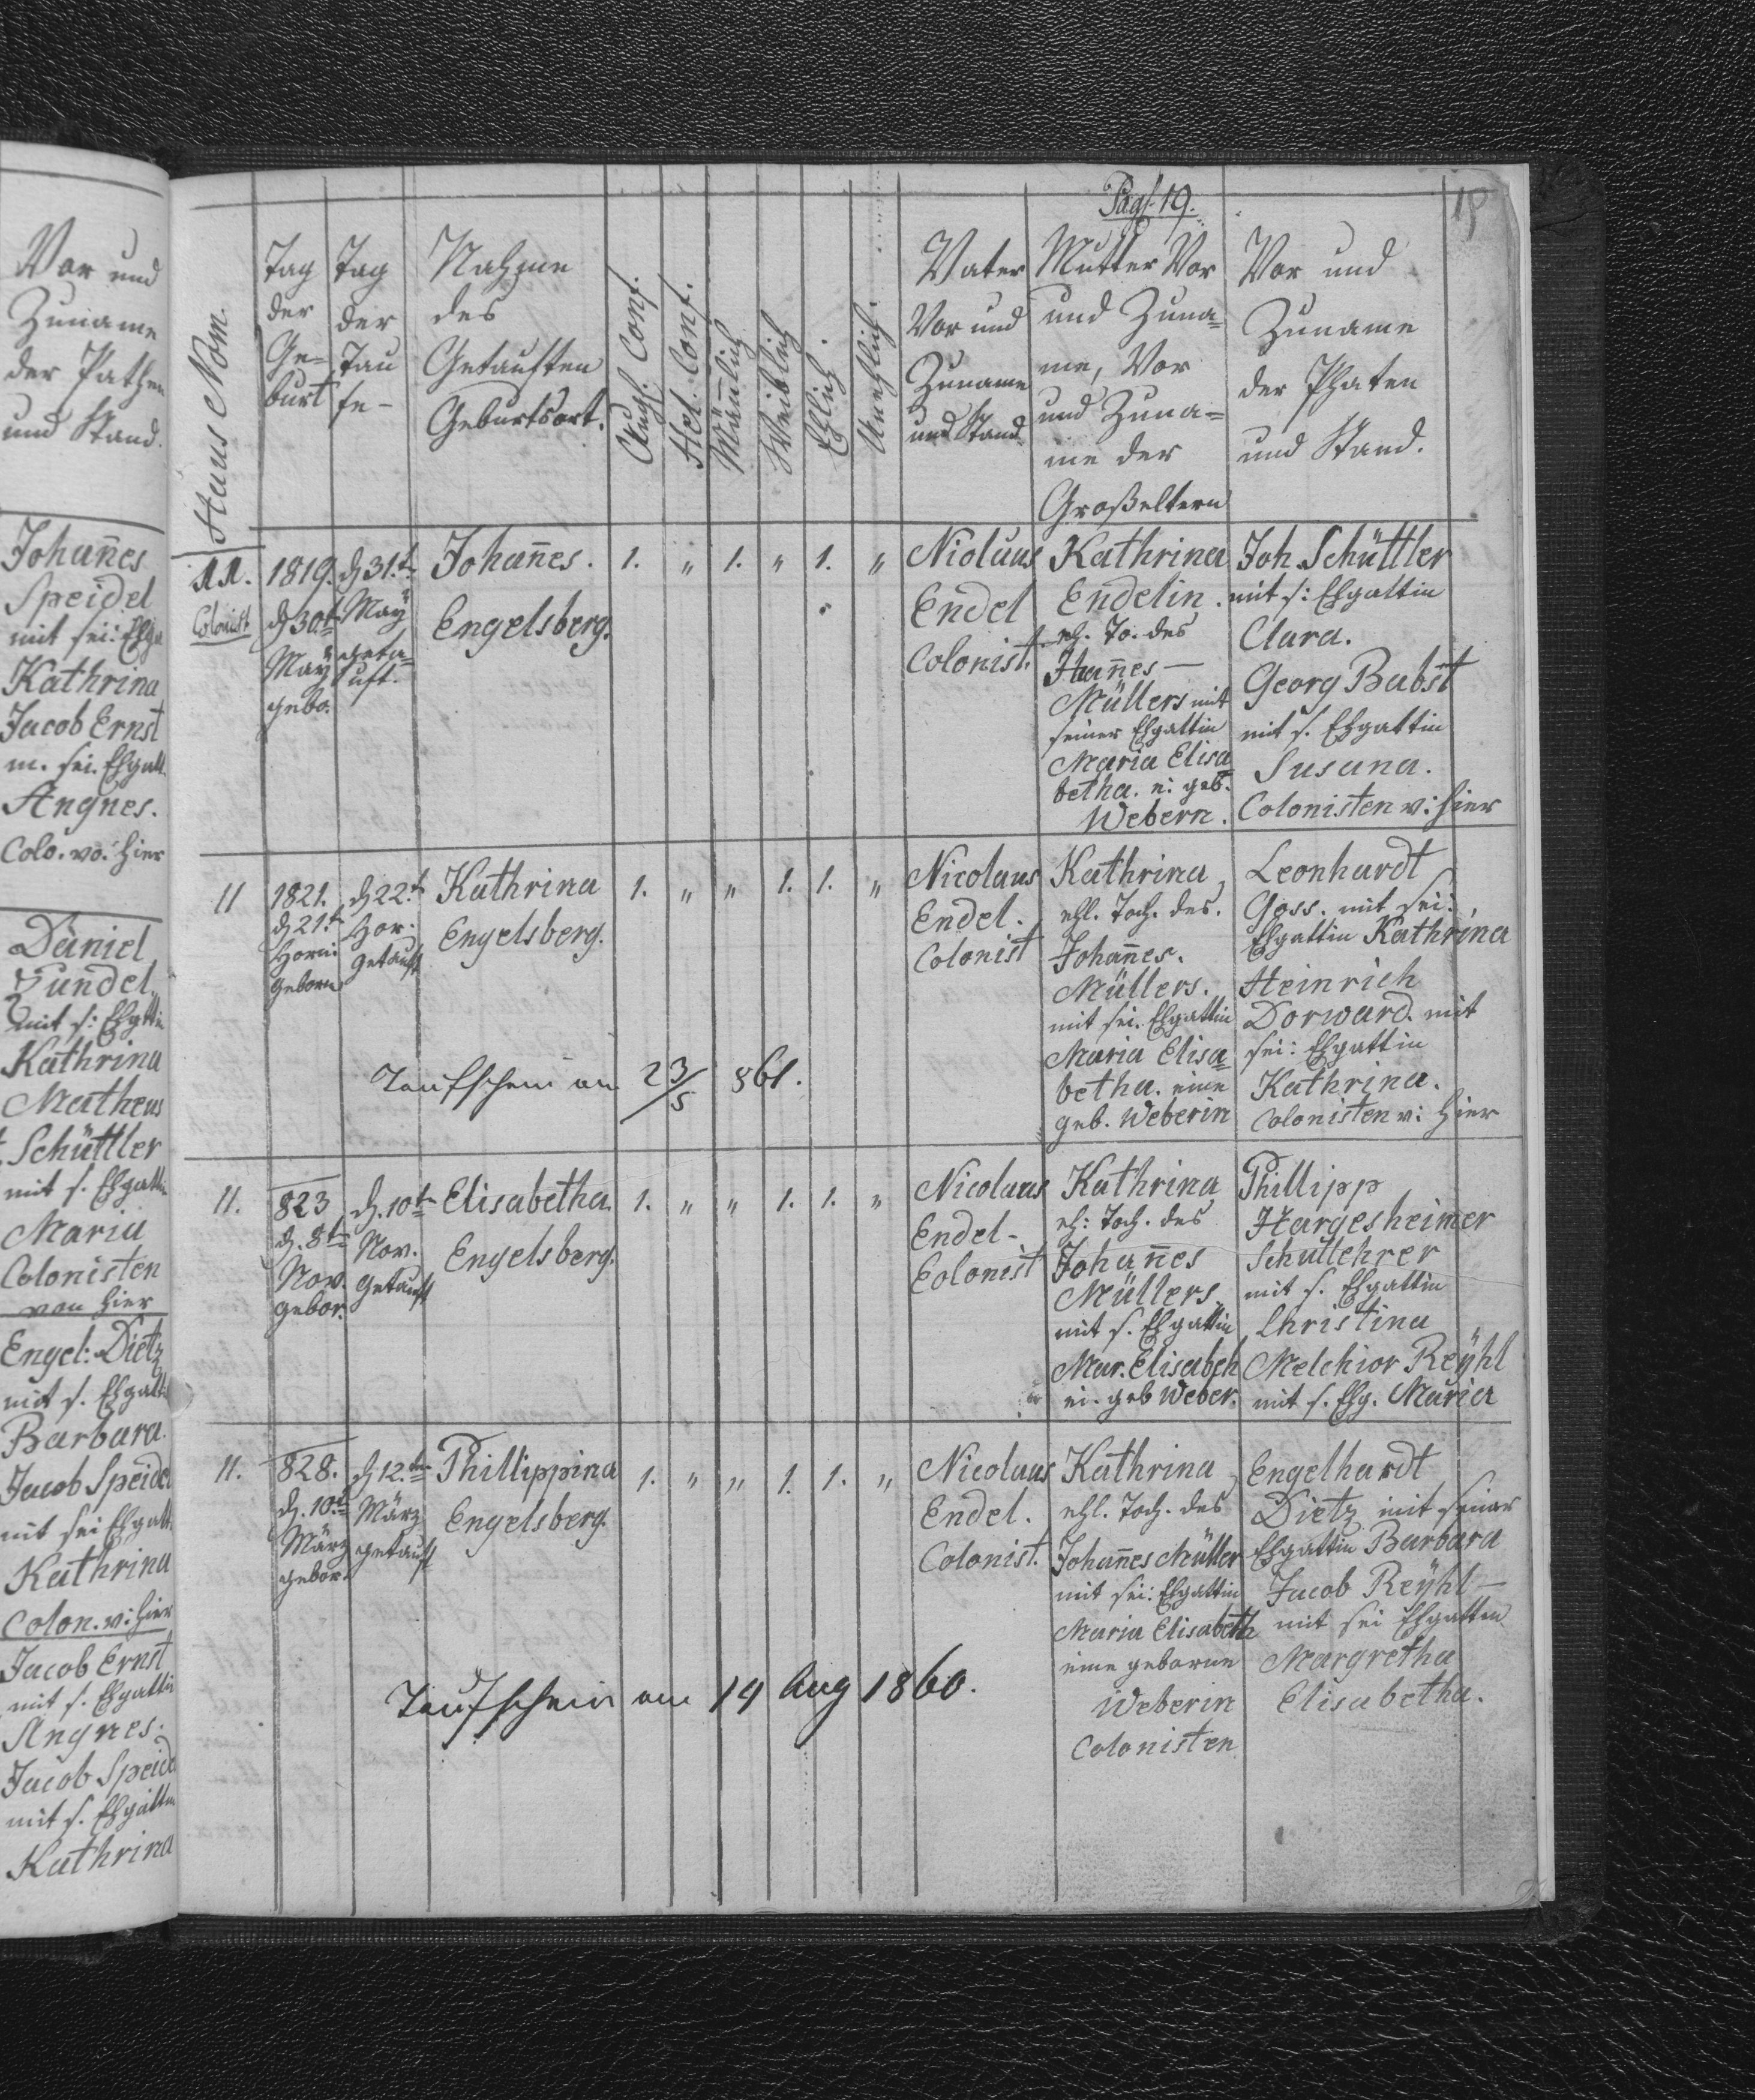 Vor und
Zuname
der Pathen
und Stand.
Johan̄es
Speidel
mit sei: Ehga
Kathrina
Jacob Ernst
m. sei. Ehgatt.
Angnes.
Colo. vo. hier
Daniel
mit s: Ehgttin
Kathrina
Matheus
Schüttler
mit s. Ehgattin
Maria
Colonisten
von hier
Engel: Dietz
mit s. Ehgatt
Barbara.
Jacob Speidel
mit sei Ehgatt.
Kathrina
Colon. v: hier
Jacob Ernst
mit s. Ehgattin
Angnes.
Jacob Speidel
mit s. Ehgattin
Kathrina
Pag. 19.
19
Haus Nom
Tag
der
Ge-
burt
Tag
der
Tau
fe-
Nahme
des
Getauften
Geburtsort.
Augs. Conf.
Hel. Conf.
Män̄lich
Weiblich
Ehlich.
Unehlich.
Vater
Vor und
Zuname
und Stand
Mutter Vor
und Zuna=
me, Vor
und Zuna=
me der
Großeltern
Vor und
Zuname
der Phaten
und Stand.
11.
Colonist
1819.
d 30t
May
gebo.
d 31.t
May
geta=
uft.
Johan̄es.
Engelsberg.
1. " 1. " 1. "
Niolaus
Endel
Colonist.
Kathrina
Endelin.
eh. To. des
Han̄es-
Müllers mit
seiner Ehgattin
Maria Elisa
betha. ei: geb.
Webern.
Joh. Schüttler
mit s: Ehgattin
Clara.
Georg Babst
mit s. Ehgattin
Susana.
Colonisten v: hier
11
1821.
d 21.t
Horni
geborn
d 22.t
Hor.
getauft
Kathrina
Engelsberg.
1. " " 1. 1. "
Nicolaus
Endel.
Colonist
Kathrina
ehl. Toch. des.
Johan̄es.
Müllers.
mit sei. Ehgattin
Maria Elisa=
betha. eine
geb. Weberin
Leonhardt
Goss. mit sei:
Ehgattin Kathrina
Heinrich
Dorward. mit
sei: Ehgattin
Kathrina.
Colonisten v: hier
Taufschein am 23/5 861.
11.
823
d. 8t
Nov.
gebor.
d. 10t
Nov.
getauft
Elisabetha.
Engelsberg.
1. " " 1. 1. "
Nicolaus
Endel-
Colonist
Kathrina
eh: Toch. des
Johan̄es
Müllers.
mit s. Ehgattin
Mar. Elisabeh
ei. geb Weber.
Phillipp
Hargesheimer
Schullehrer
mit s. Ehgattin
Christina
Melchior Reÿhl
mit s. Ehg. Maria
11.
828.
d. 10.t
März
gebor.
d 12.ten
März
getauft
Phillippina
Engelsberg.
1. " " 1. 1. "
Nicolaus
Endel.
Colonist.
Kathrina
ehl. Toch. des
Johan̄es Müller
mit sei: Ehgattin
Maria Elisabeth
eine geborne
Weberin
Colonisten
Engelhardt
Dietz mit seiner
Ehgattin Barbara
Jacob Reÿhl-
mit sei Ehgattin
Margretha
Elisabetha.
Taufschein am 14 Aug 1860.